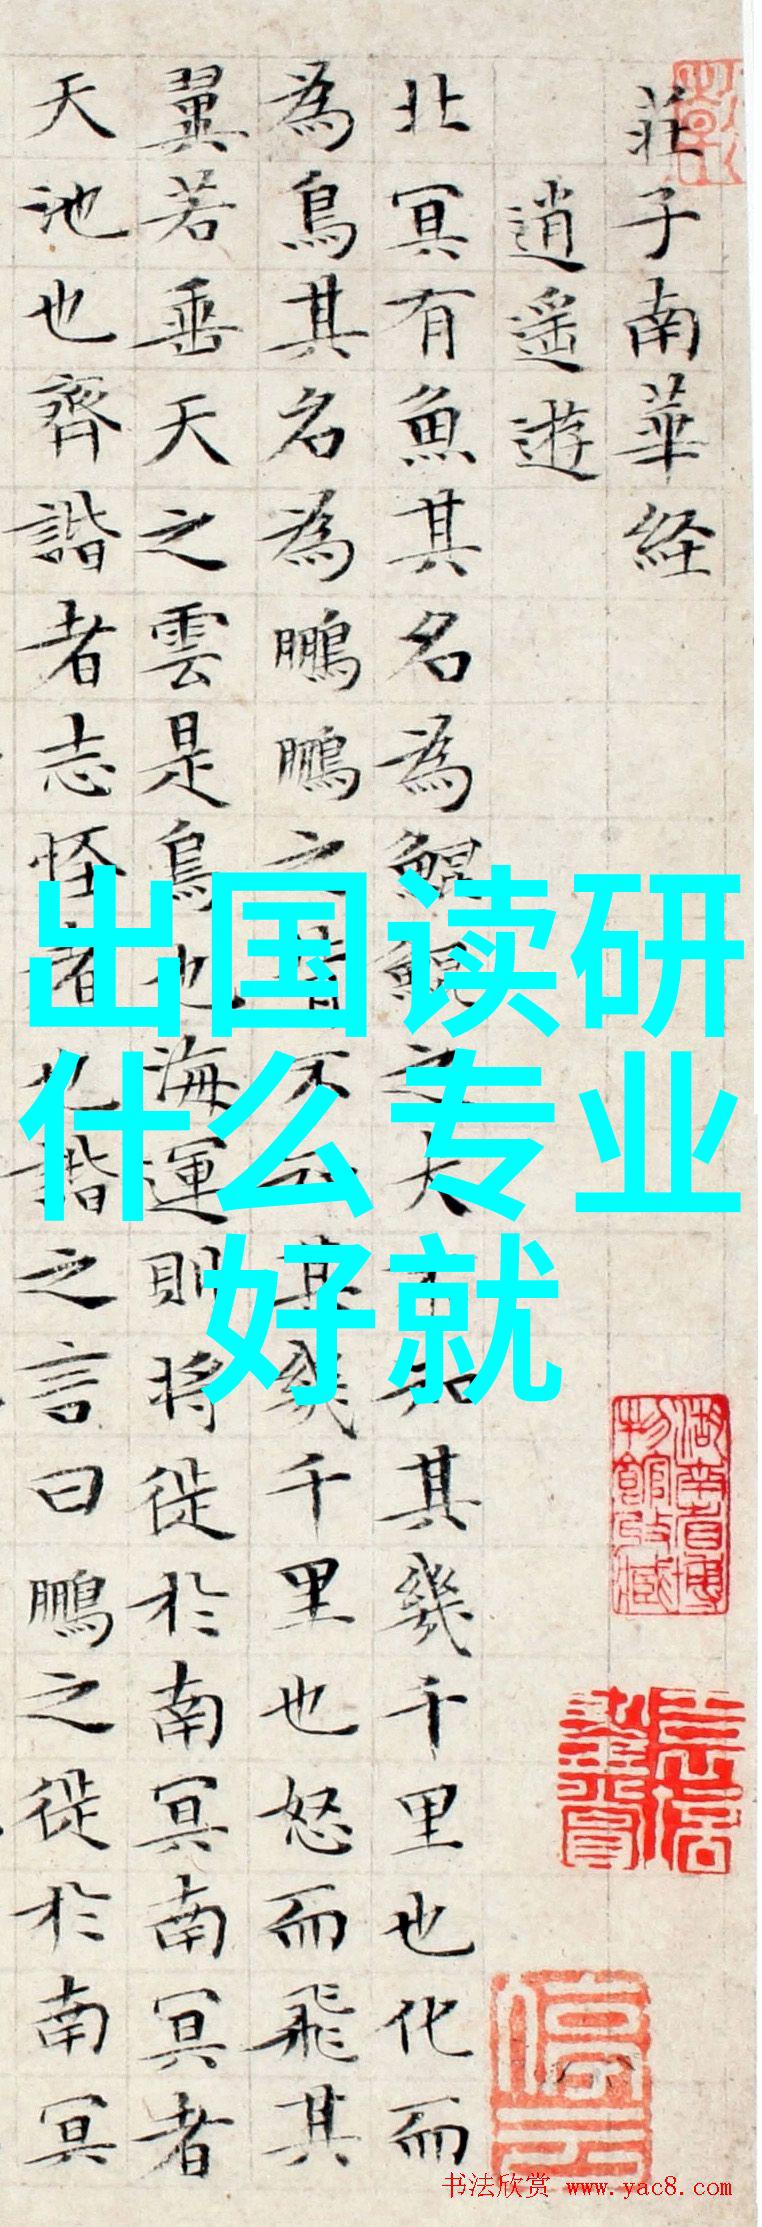 莊子南華経
逍遙遊
北冥有魚其名為鯤鯤之大不知其幾千里也化而
為鳥其名為鵬鵬之背不知其幾千里也怒而飛其
翼若垂天之雲是鳥也海運則将徙於南冥南冥者
天池也齊諧者志怪者也諧之言曰鵬之徙於南冥
出国读研
什么专业
好就
湖南省博
物館收藏
停云
书法欣赏 www.yac8.com